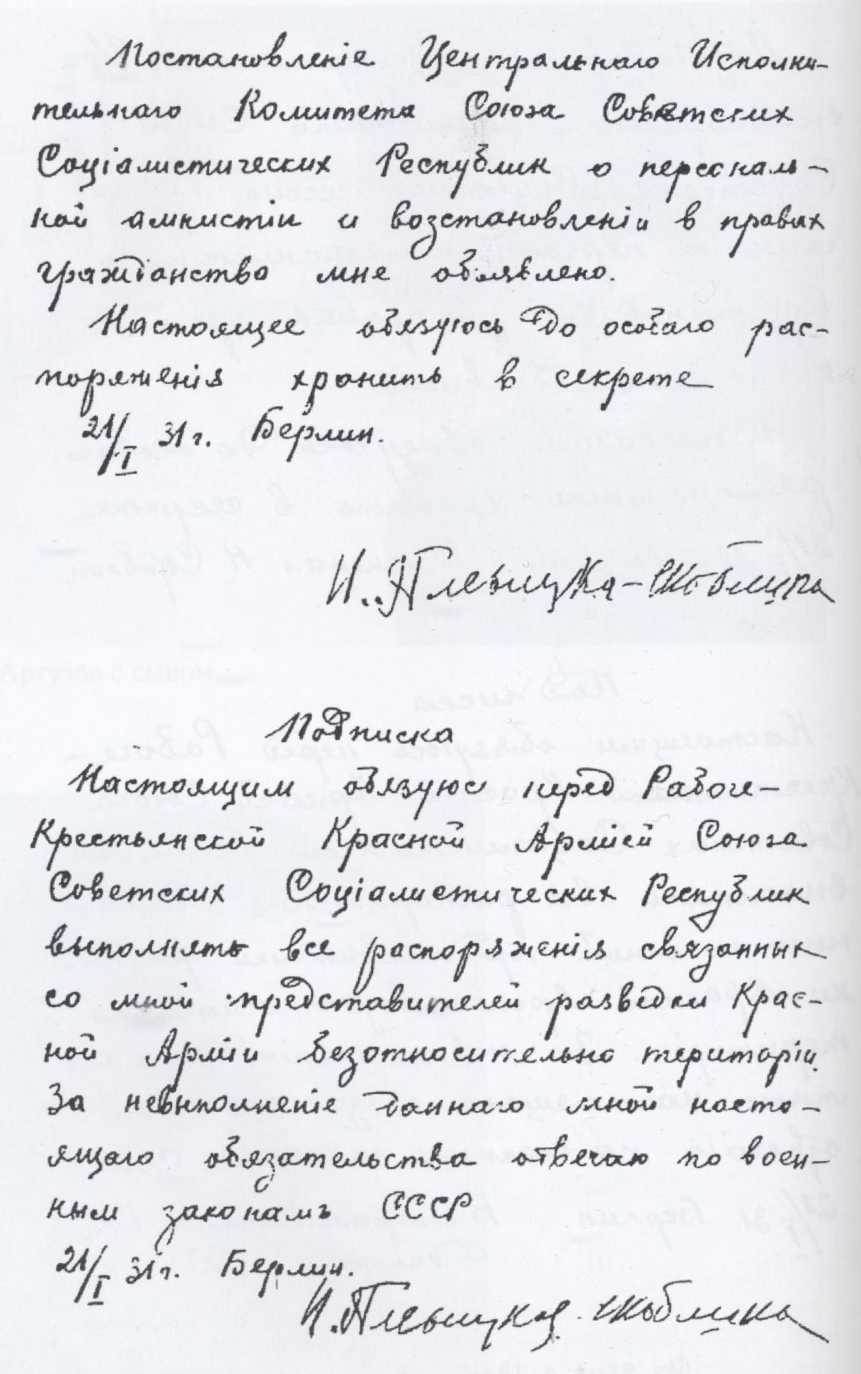 Постановленіе Центральнаго Исполни-
тельнаго Комитета Союза Советских
Соціалистических Республик о персональ-
ной амнистіи и возстановленіи в правах
гражданство мне объявлено.
Настоящее обязуюсь до особаго рас-
поряженія хранить в секрете
21/I 31 г. Берлин.
Н. Плевицкая-Скоблина
Подписка
Настоящим обязуюс перед Рабоче-
Крестьянской Красной Арміей Союза
Советских Соціалистических Республик
выполнять все распоряженія связанных
со мной представителей разведки Крас-
ной Арміи безотносительно територіи.
За невыполненіе даннаго мной насто-
ящаго обязательства отвечаю по воен-
ным законамъ СССР
21/I 31 г. Берлин.
Н. Плевицкая-Скоблина